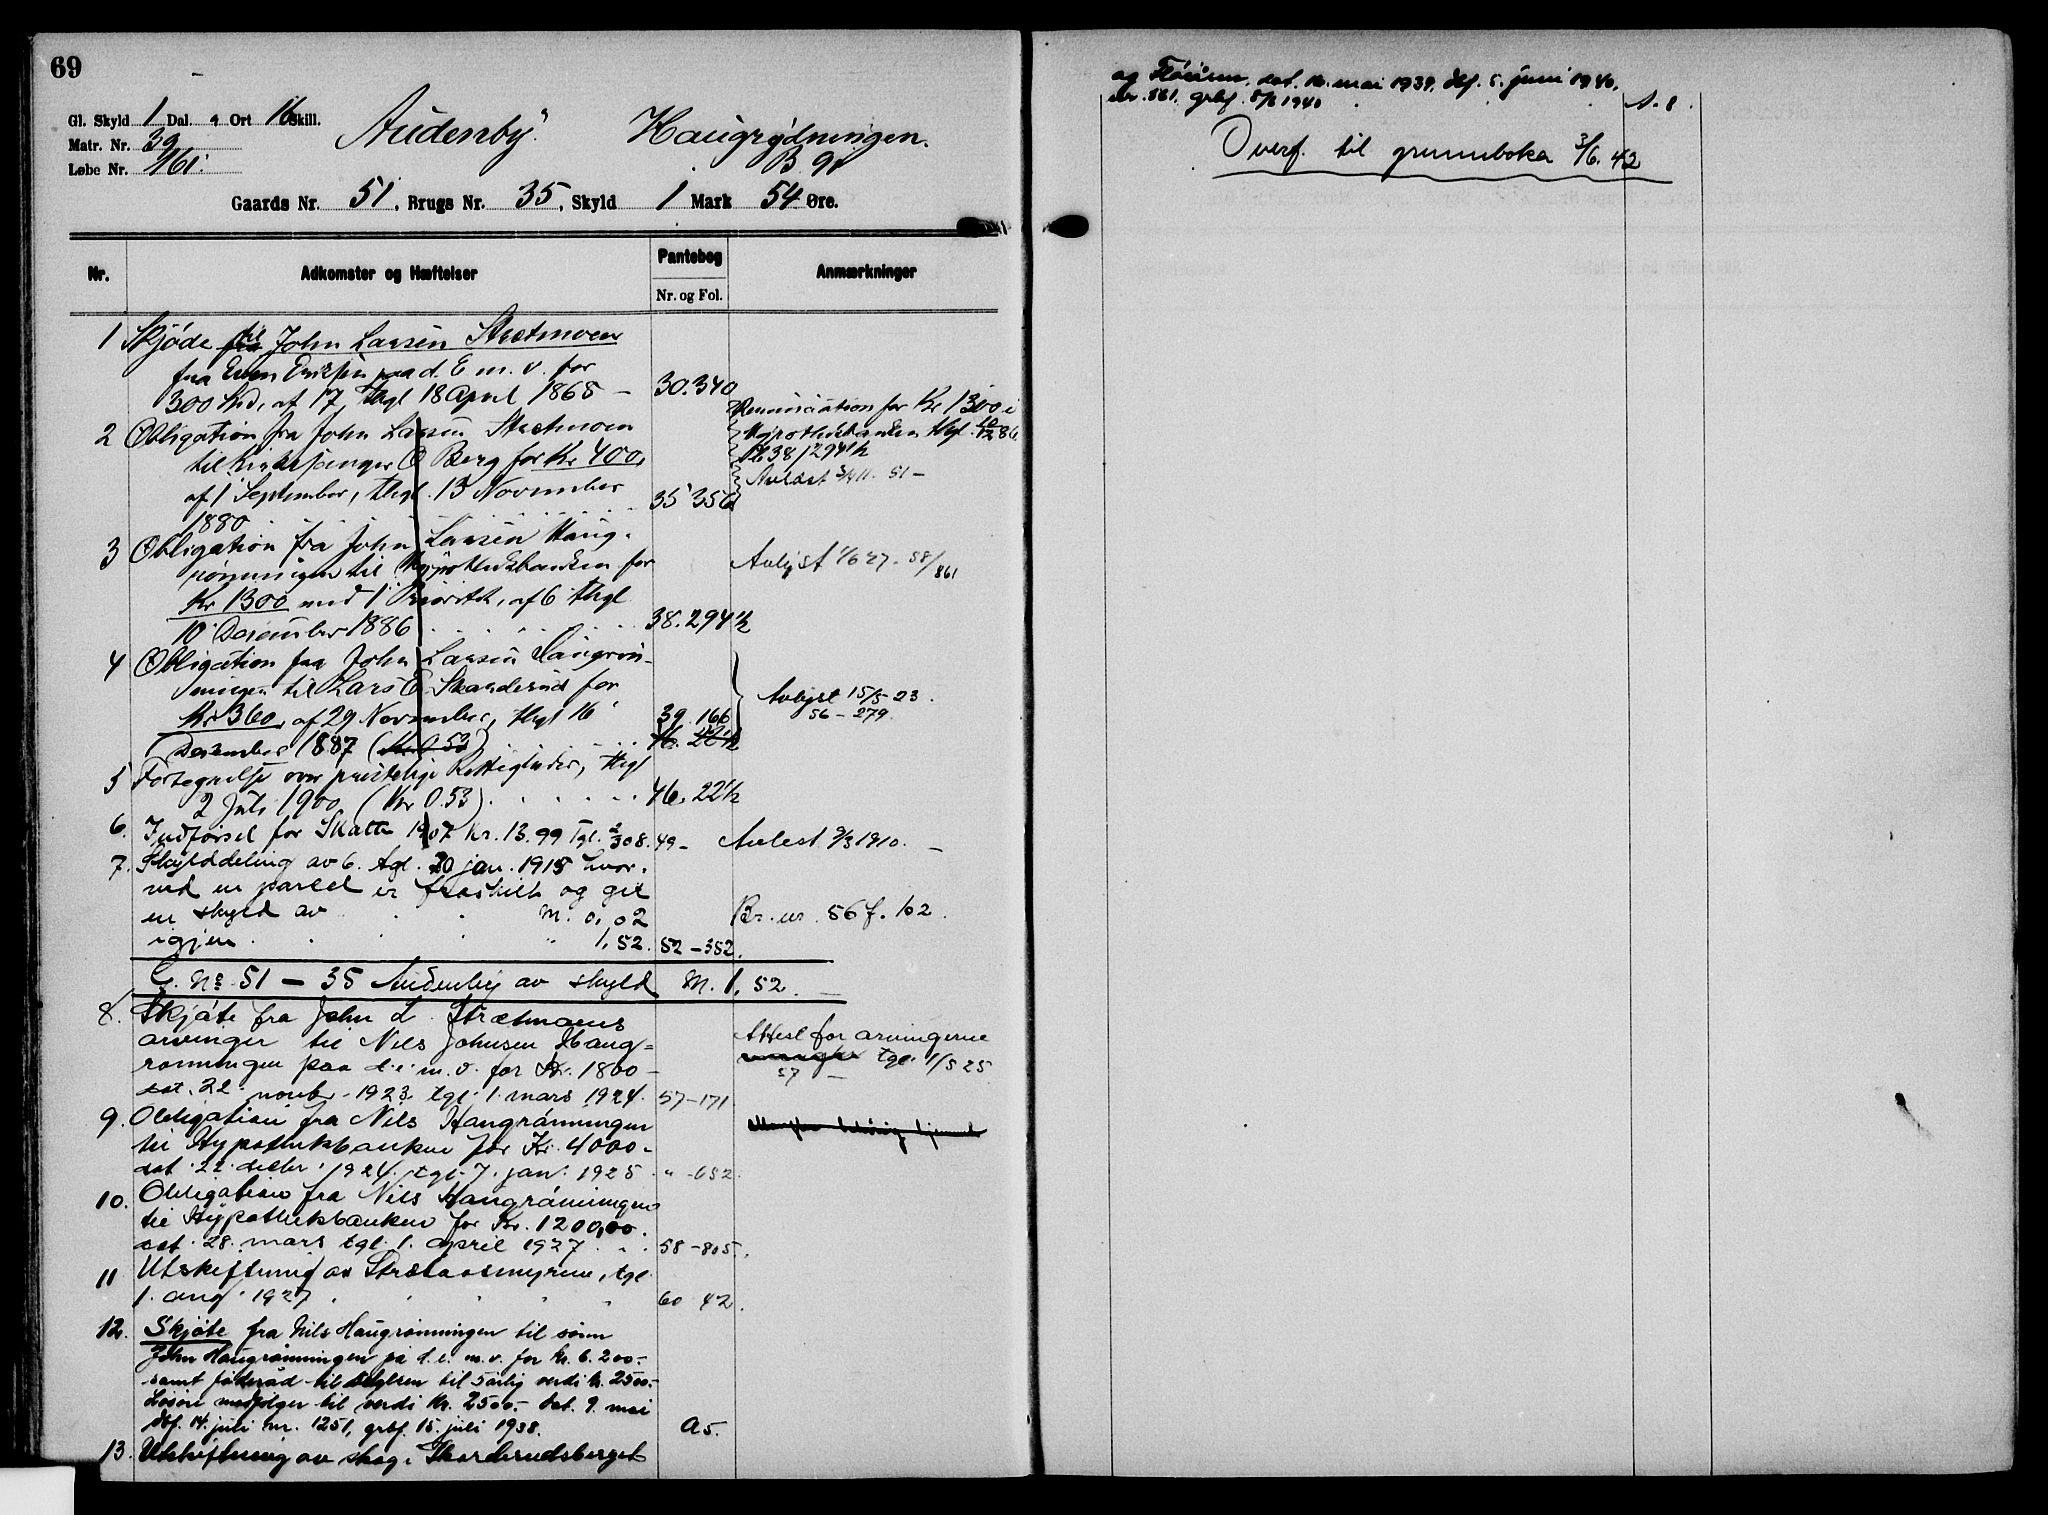 69
Gl. Skyld 1 Dal. 4 Ort 16 Skill.
Matr. Nr. 39
Løbe Nr. 161.
Audenby. Haugrydningen.
B. 91
Gaards Nr. 51, Brugs Nr. 35, Skyld 1 Mark 54 Øre.
Nr. Adkomster og Hæftelser Pantebog Nr. og Fol. Anmærkninger
1 Skjøde til John Larsen Strætmoen
fra Even Eriksen paa d. E. m. v. for
300 Spd, af 17, thgl 18 April 1868 – 30.340
2 Obligation fra John Larsen Strætmoen
til Kirkesanger O Berg for Kr 400,
af 1 September, thgl. 13 November
1880 35 356
Renunciation for Kr 1300 i
Hypothekbanken thgl. 10/12 86
38 / 294½
Avlæst 3/4 11. 51 –
3 Obligation fra John Larsen Haug-
rønningen til Hypothekbanken for
Kr 1300 med 1 Prioritet, af 6 thgl
10 December 1886 38.294½
Avlyst 1/6 27. 58/861
4 Obligation fra John Larsen Haugrøn-
ningen til Lars E Skarderud for
Kr 360, af 29 November, thgl 16
December 1887 (Kr 0.53) 39.166
46. 22½
Avlyst 15/5 23.
56 – 279.
5 Fortegnelse over præstelige Rettigheder, thgl
2 Juli 1900 (Kr 0.53) 46. 22½
6. Indførsel for Skatter 1907 Kr. 13.99 Tgl. 308. 49 –
Avlest 9/3 1910. –
7. Skylddeling av 6. tgl. 20 jan. 1915 hvor-
ved en parcel er fraskilt og git
en skyld av M. 0,02
igjen " 1,52. 52 – 352.
Br. nr. 56 f. 102.
G. No 51 – 35 Audenby av skyld M. 1,52
8. Skjøte fra John L. Strætmoens
arvinger til Nils Johnsen Haug-
rønningen paa d. e. m. v. for Kr. 1800 –
dat. 22. novbr. 1923 tgl. 1. mars 1924. 57 – 171
Attest for arvingerne
tgl. 1/5 25
57 –
9. Obligation fra Nils Haugrønningen
til Hypothekbanken for Kr. 4000 –
dat. 22. decbr. 1924. tgl. 7. jan. 1925 " – 652.
10. Obligation fra Nils Haugrønningen
til Hypothekbanken for Kr. 1200,00.
dat. 28. mars tgl. 1. april 1927. 58 – 805.
11 Utskiftning av Strætaasmyrene, tgl.
1. aug. 1927 60 42.
12. Skjøte fra Nils Haugrønningen til sønn
John Haugrønningen på d. e. m. v. for kr. 6.200.–
samt føderåd til selgeren til 5 årlig verdi kr. 2500.–
Løsøre medfølger til verdi kr. 2500.– Dat. 9. mai
dbf. 14. juli nr. 1251, grbf. 15. juli 1938. A 5.
13. Utskiftning av skog i Skarderudsberget
og Fløiten, dat. 16. mai 1939, dbf. 5. juni 1940,
nr. 881. grbf. 8/6 1940 A. 8.
Overf. til grunnboka 3/6. 42